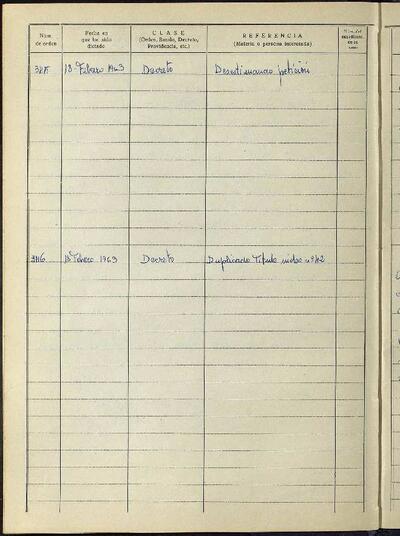 Núm. de orden
Fecha en que ha sido dictado
CLASE
(Orden, Bando, Decreto, Providencia, etc.)
REFERENCIA
(Materia o persona interesada)
18 Febrero 1963 Decreto Desestimando petición
3116 18 Febrero 1963 Decreto Duplicado Título nicho nº